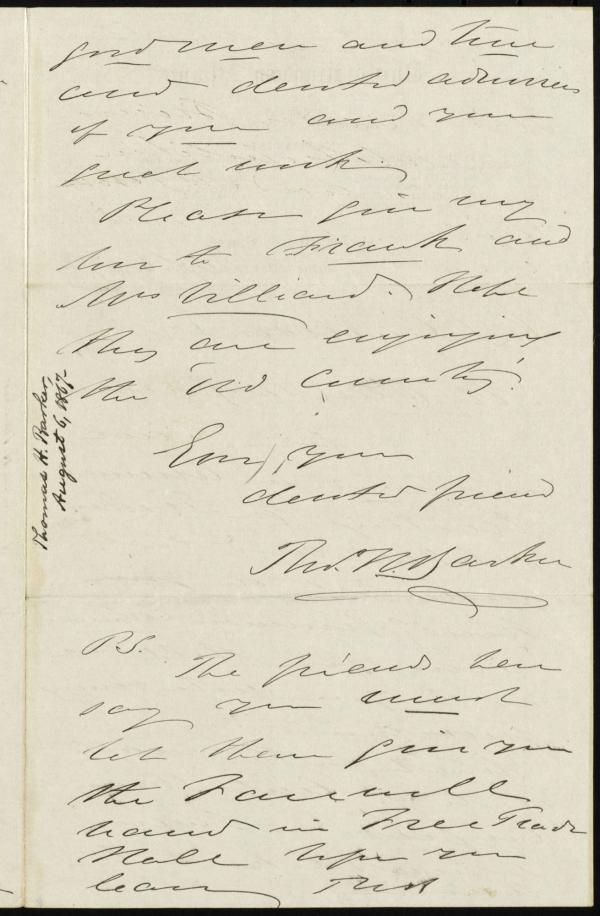 good men and true
and devoted admirers
of you and your
great work.
Please give my
love to Frank and
Mrs Villiard. Hope
they are enjoying
the old country.
Ever your
devoted friend
Thos. H. Barker
P.S. The friends here
say you must
let them give you
the Farewell
hand in Free Trade
Hall before you
leave THB
Thomas H. Barker,
August 6, 1867.